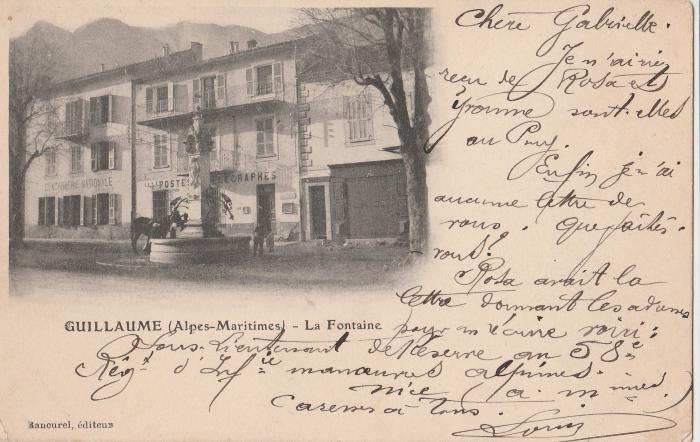 Chère Gabrielle.
Je n'ai rien
reçu de Rosa et
Yvonne sont-elles
au Puy.
Enfin je n'ai
aucune lettre de
vous. que faites-
vous?
Rosa avait la
lettre donnant les adresses
pour m'écrire voici:
Sous-Lieutenant de Réserve au 58e
Régt d'Infie manœuvres alpines.
Nice (a. m.)
Caresses à Tous.
Louis
GENDARMERIE NATIONALE
POSTES TELEGRAPHES
GUILLAUME (Alpes-Maritimes) - La Fontaine
Rancurel, éditeur